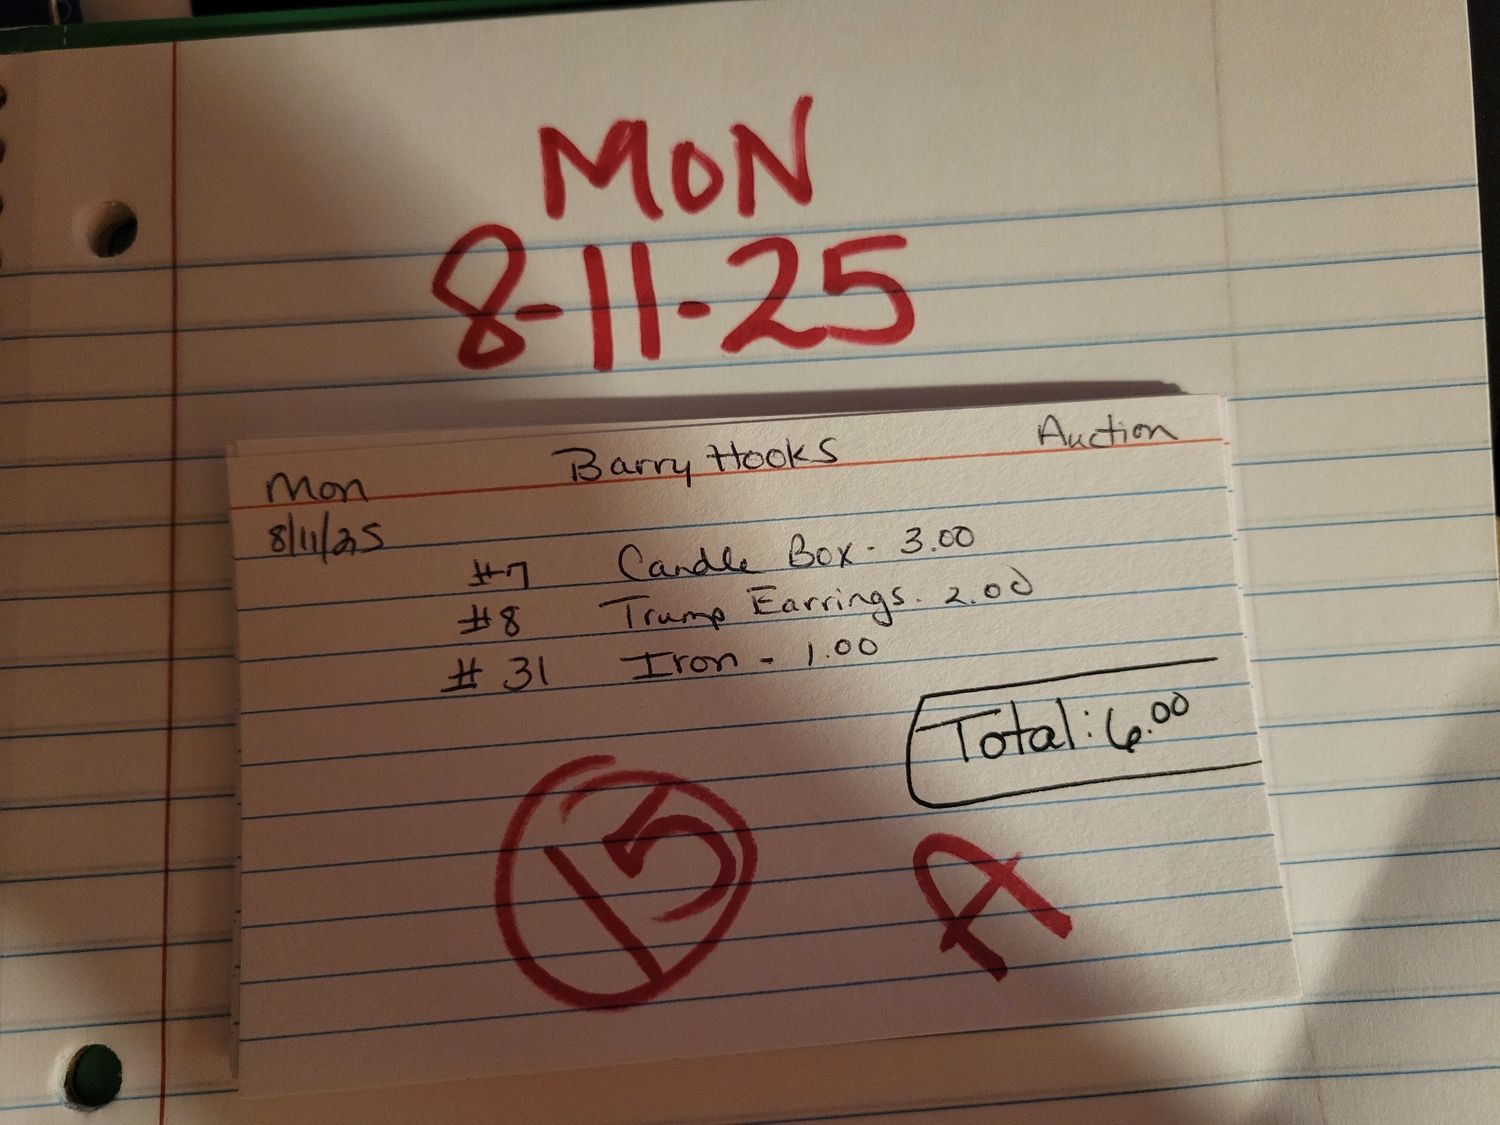 MON
8-11-25
Mon Barry Hooks Auction
8/11/25
#7 Candle Box - 3.00
#8 Trump Earrings - 2.00
#31 Iron - 1.00
Total: 6.00
15 A